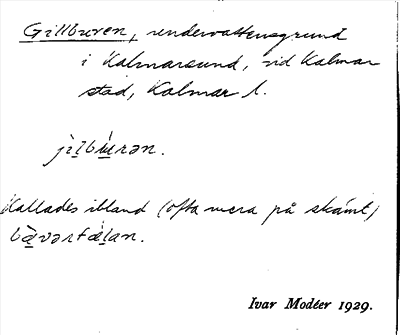 Gillburen, undervattensgrund
i Kalmarsund, vid Kalmar
stad, Kalmar l.
jìlbúrən.
Kallades ibland (ofta mera på skämt)
bàvərfælan.
Ivar Modéer 1929.